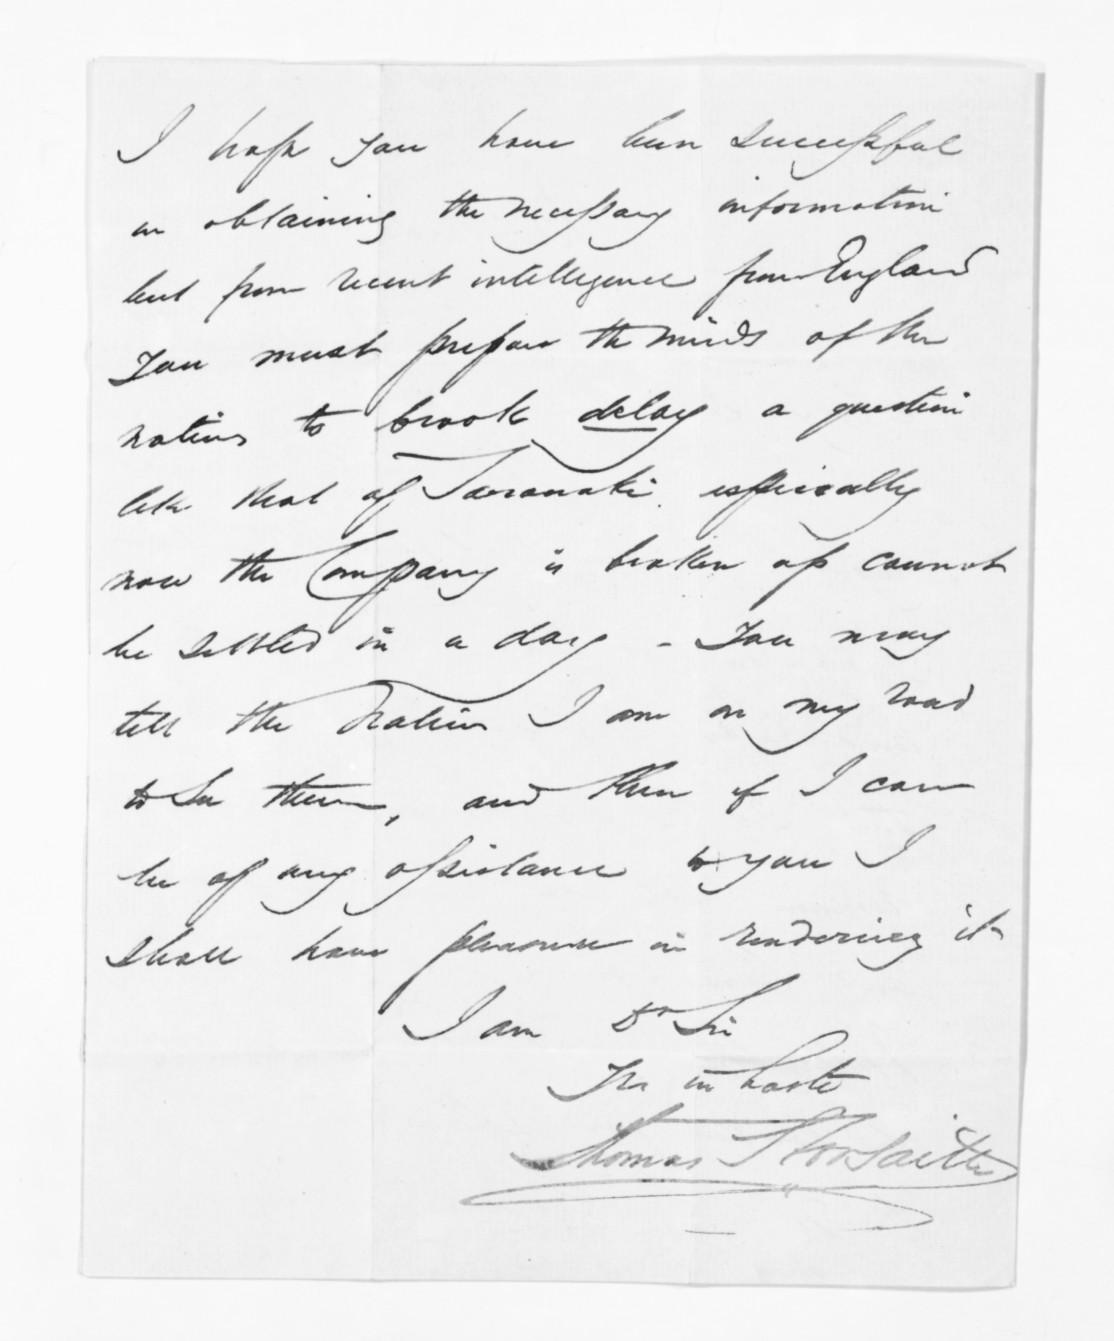 I hope you have been successful
in obtaining the necessary information
but from recent intelligence from England
you must prepare the minds of the
natives to brook delay a question
like that of Taranaki especially
now the Company is broken up cannot
be settled in a day - You may
tell the Natives I am on my road
to see them, and then if I can
be of any assistance to you I
shall have pleasure in rendering it
I am Dr Sir
Yrs in haste
Thomas S Forsaith